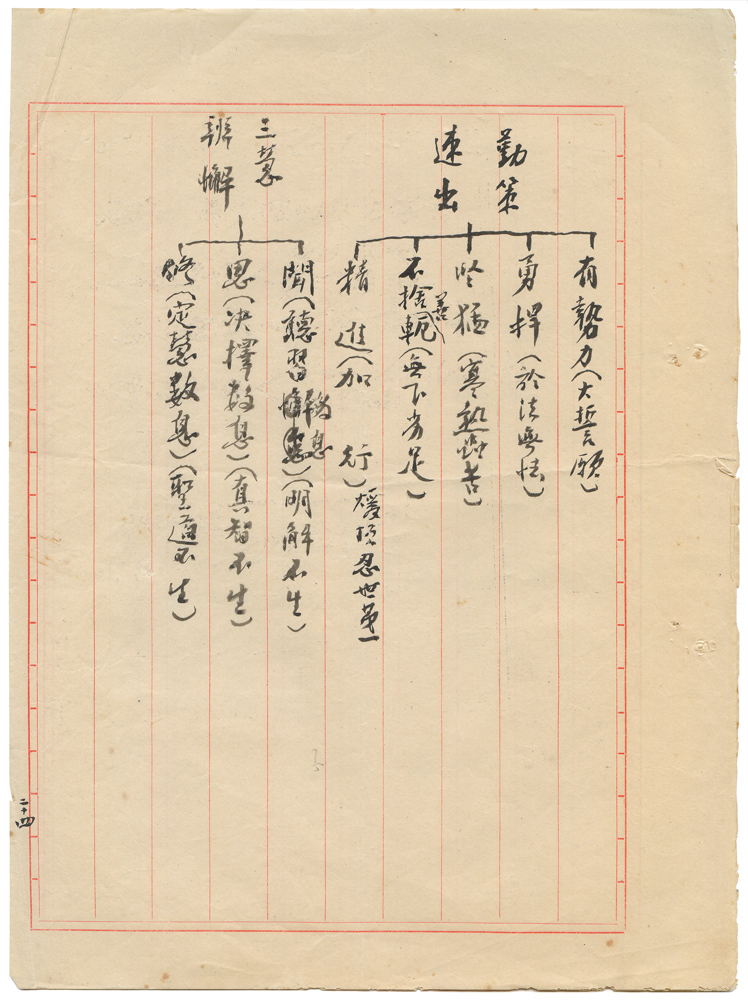 勤策
速出
有勢力（大誓願）
勇捍（於法無怯）
堅猛（寒熱蚊苦）
不捨善軛（無下劣足）
精進（加行）煖頂忍世第一
三慧
辨懈
聞（聽習懈數息）（明解不生）
思（決擇數息）（真智不生）
修（定慧數息）（聖道不生）
二十四